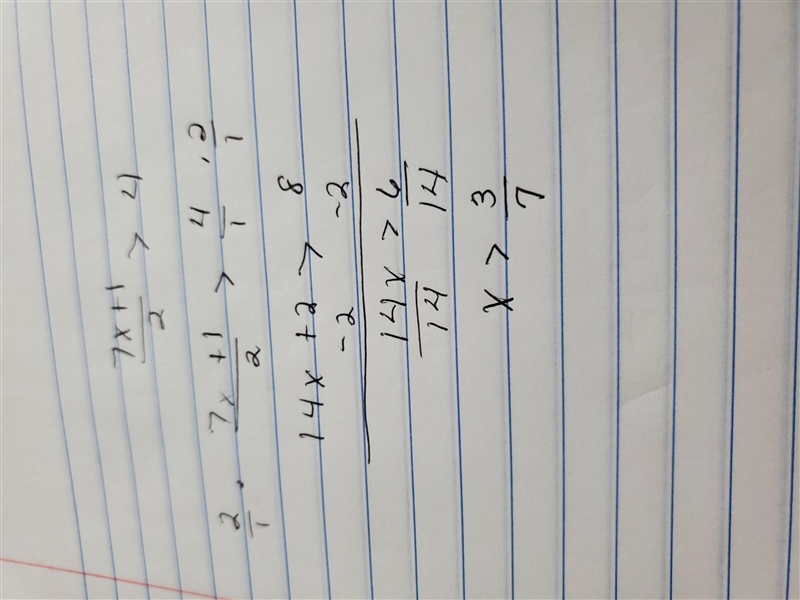 7x+1/2 > 4
2/1 · 7x+1/2 > 4/1 · 2/1
14x + 2 > 8
-2 -2
14x/14 > 6/14
x > 3/7